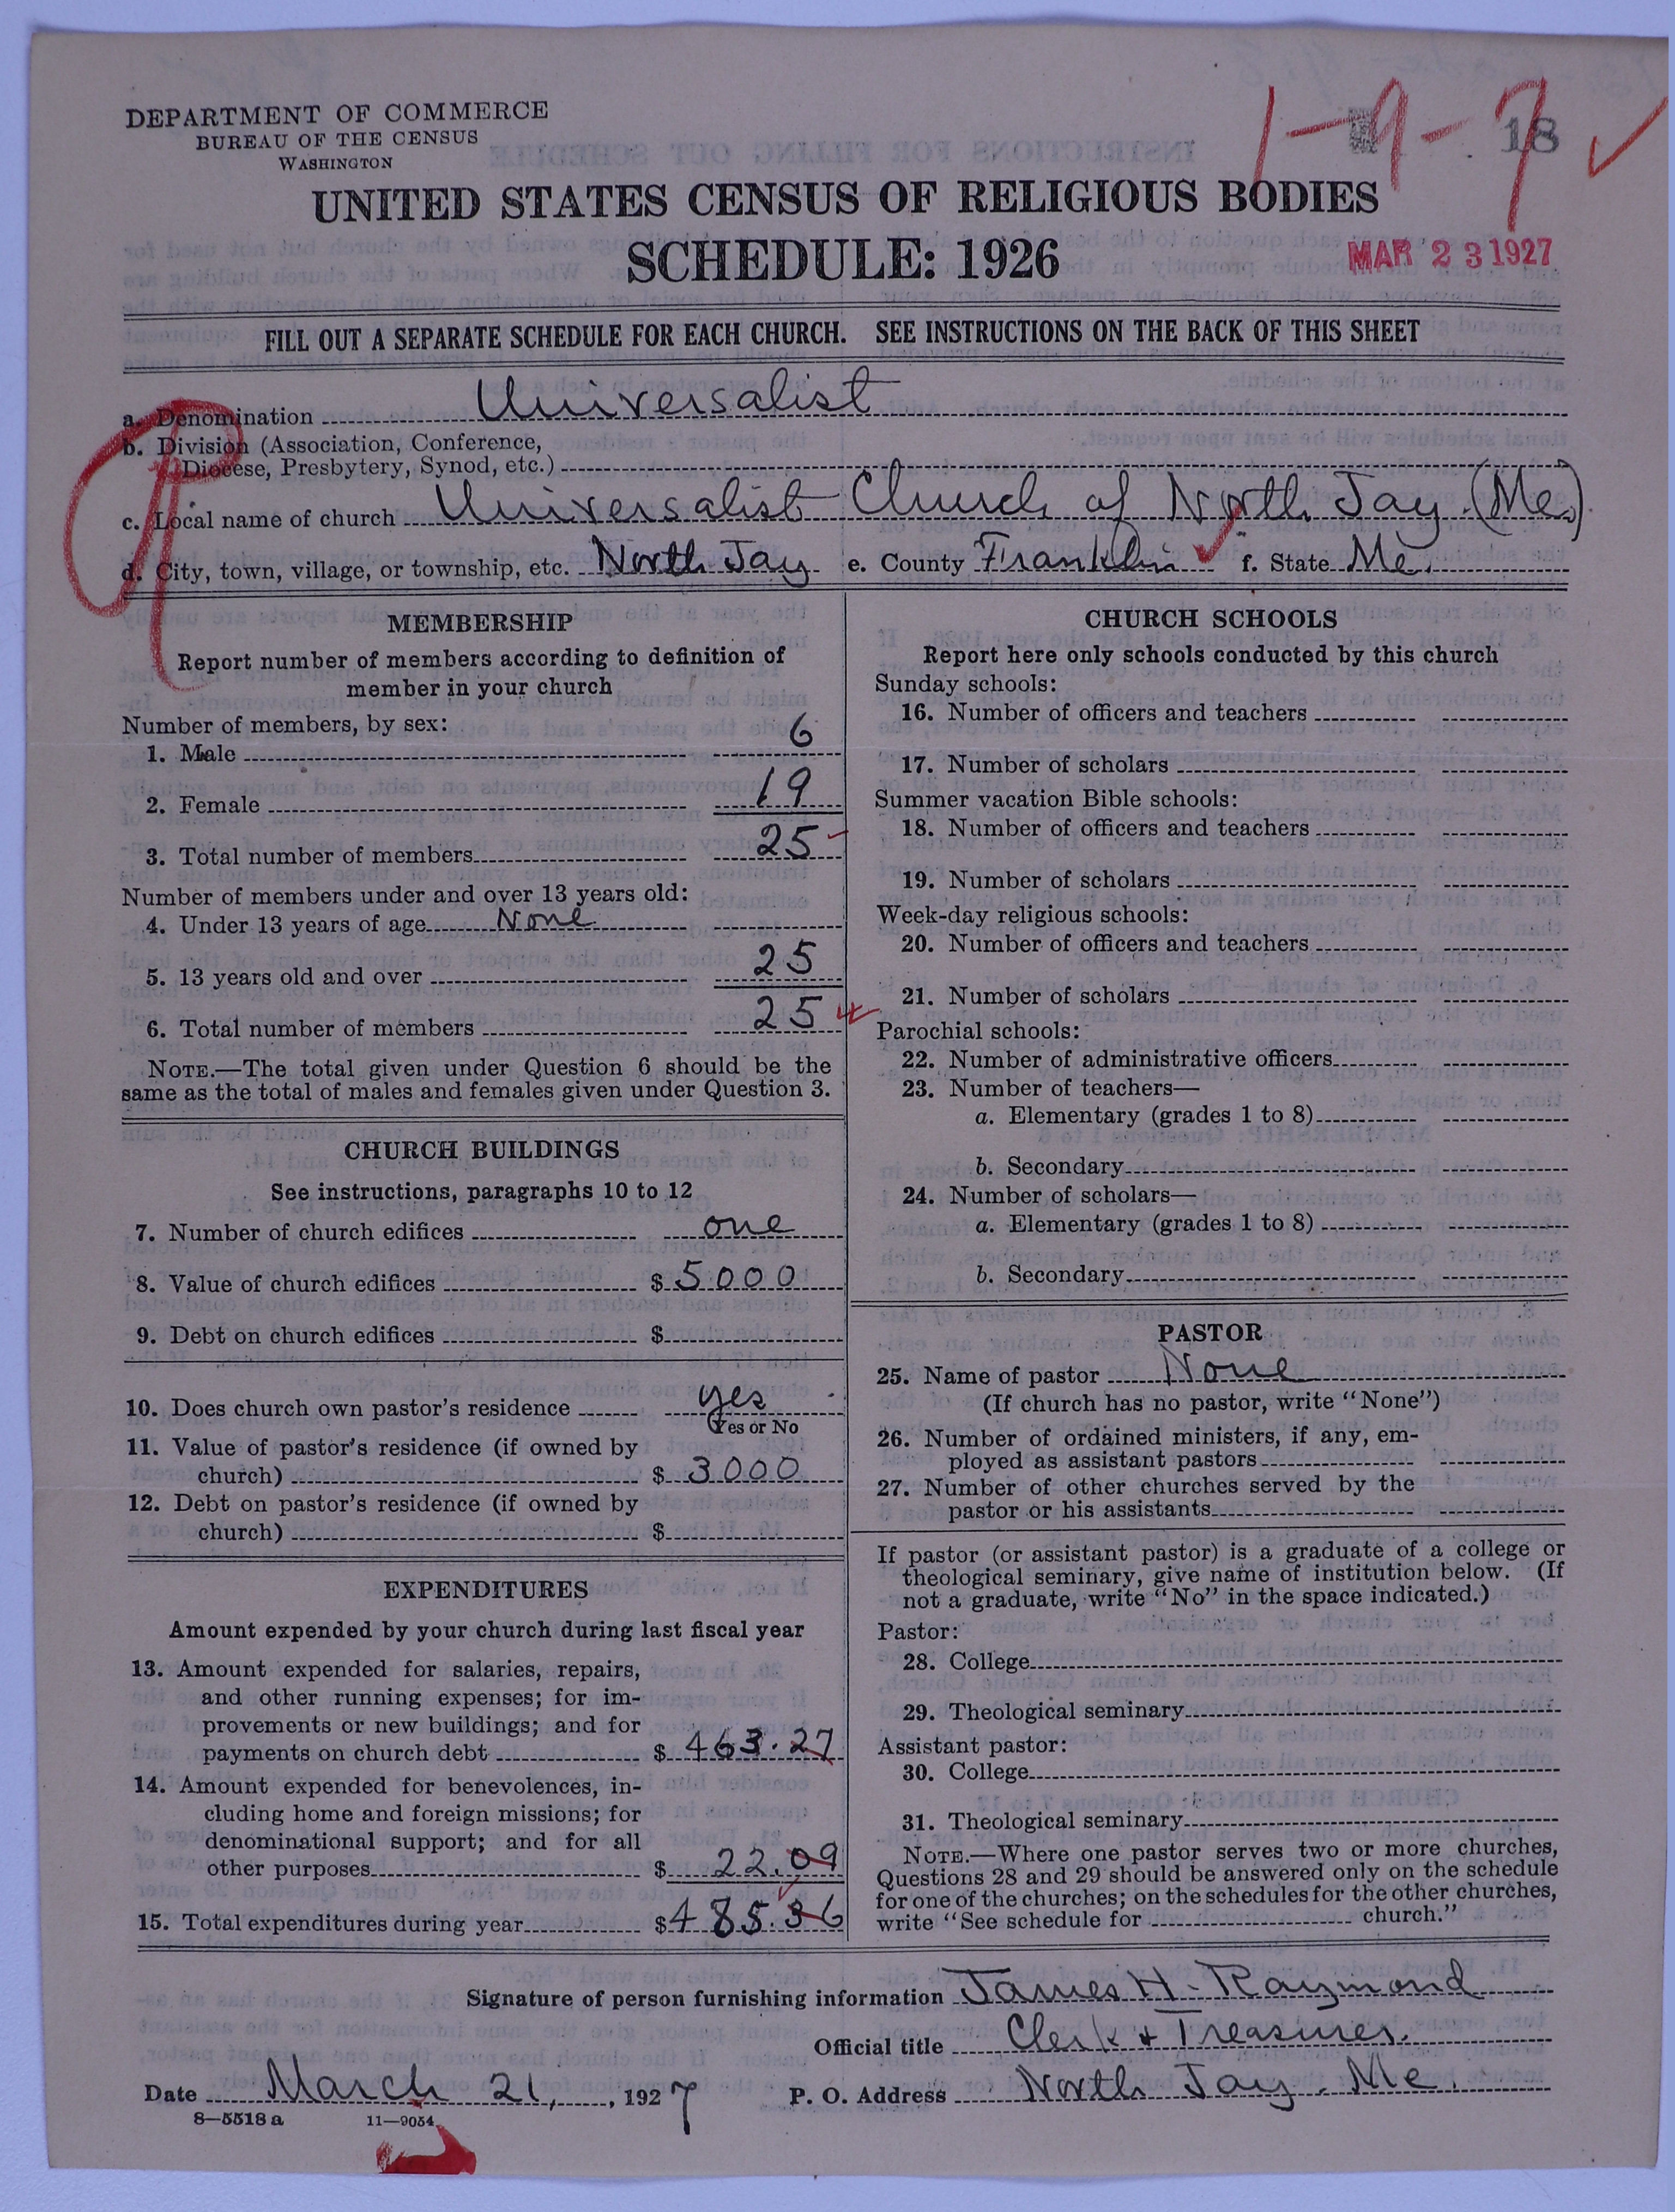 DEPARTMENT OF COMMERCE
BUREAU OF THE CENSUS
WASHINGTON
1-9-7
18
UNITED STATES CENSUS OF RELIGIOUS BODIES
SCHEDULE: 1926
MAR 23 1927
FILL OUT A SEPARATE SCHEDULE FOR EACH CHURCH. SEE INSTRUCTIONS ON THE BACK OF THIS SHEET
a. Denomination Universalist
b. Division (Association, Conference,
Diocese, Presbytery, Synod, etc.)
c. Local name of church Universalist Church of North Jay. (Me.)
d. City, town, village, or township, etc. North Jay e. County Franklin f. State Me.
MEMBERSHIP
Report number of members according to definition of
member in your church
Number of members, by sex:
1. Male 6
2. Female 19
3. Total number of members 25
Number of members under and over 13 years old:
4. Under 13 years of age None
5. 13 years old and over 25
6. Total number of members 25
NOTE.—The total given under Question 6 should be the
same as the total of males and females given under Question 3.
CHURCH BUILDINGS
See instructions, paragraphs 10 to 12
7. Number of church edifices one
8. Value of church edifices $ 5000
9. Debt on church edifices $
10. Does church own pastor's residence yes
(Yes or No
11. Value of pastor's residence (if owned by
church) $ 3000
12. Debt on pastor's residence (if owned by
church) $
EXPENDITURES
Amount expended by your church during last fiscal year
13. Amount expended for salaries, repairs,
and other running expenses; for im-
provements or new buildings; and for
payments on church debt $ 463.27
14. Amount expended for benevolences, in-
cluding home and foreign missions; for
denominational support; and for all
other purposes $ 22.09
15. Total expenditures during year $ 485.36
CHURCH SCHOOLS
Report here only schools conducted by this church
Sunday schools:
16. Number of officers and teachers
17. Number of scholars
Summer vacation Bible schools:
18. Number of officers and teachers
19. Number of scholars
Week-day religious schools:
20. Number of officers and teachers
21. Number of scholars
Parochial schools:
22. Number of administrative officers
23. Number of teachers—
a. Elementary (grades 1 to 8)
b. Secondary
24. Number of scholars—
a. Elementary (grades 1 to 8)
b. Secondary
PASTOR
25. Name of pastor None
(If church has no pastor, write "None")
26. Number of ordained ministers, if any, em-
ployed as assistant pastors
27. Number of other churches served by the
pastor or his assistants
If pastor (or assistant pastor) is a graduate of a college or
theological seminary, give name of institution below. (If
not a graduate, write "No" in the space indicated.)
Pastor:
28. College
29. Theological seminary
Assistant pastor:
30. College
31. Theological seminary
NOTE.—Where one pastor serves two or more churches,
Questions 28 and 29 should be answered only on the schedule
for one of the churches; on the schedules for the other churches,
write "See schedule for church."
Signature of person furnishing information James H. Raymond
Official title Clerk & Treasurer.
Date March 21, 1927 P. O. Address North Jay. Me.
8—5518 a 11—9054